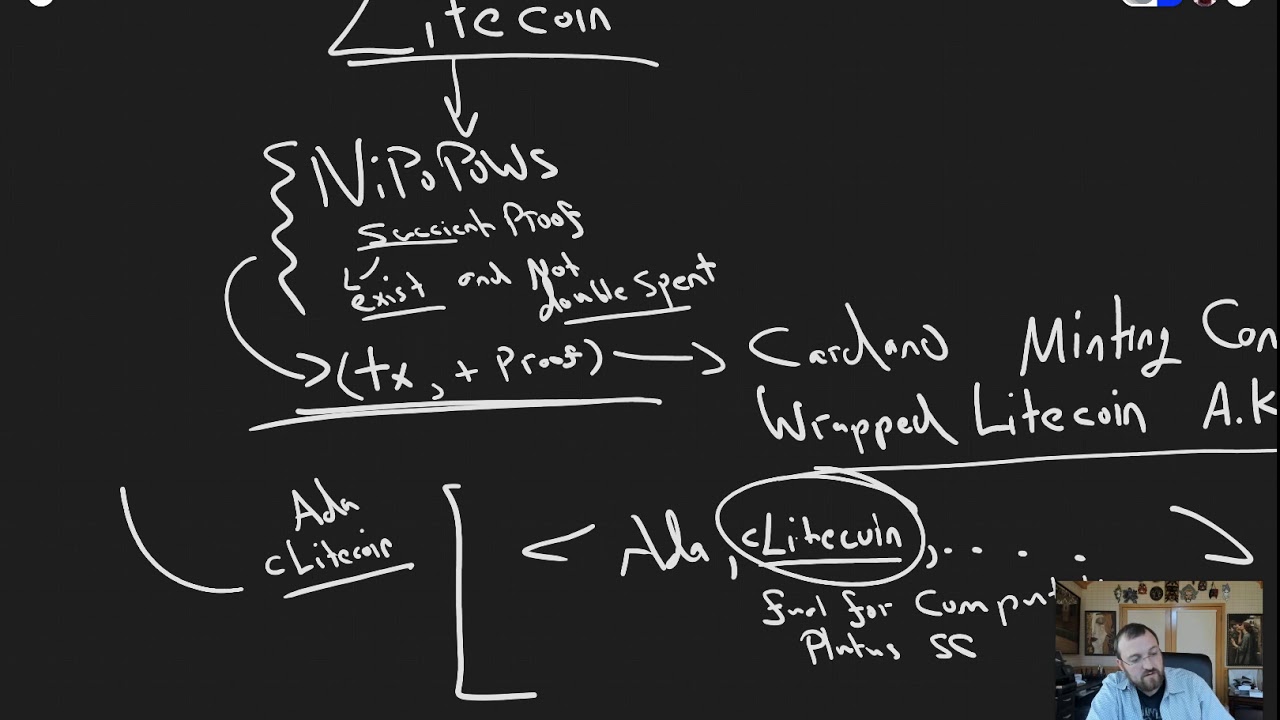 Litecoin
NiPoPoWs
Succient Proof
exist and Not
double Spent
(tx, + Proof)
Cardano Minting Con
Wrapped Litecoin A.K
Ada
cLitecoin
< Ada, cLitecoin, . . . . >
fuel for Comput
Plutus SC